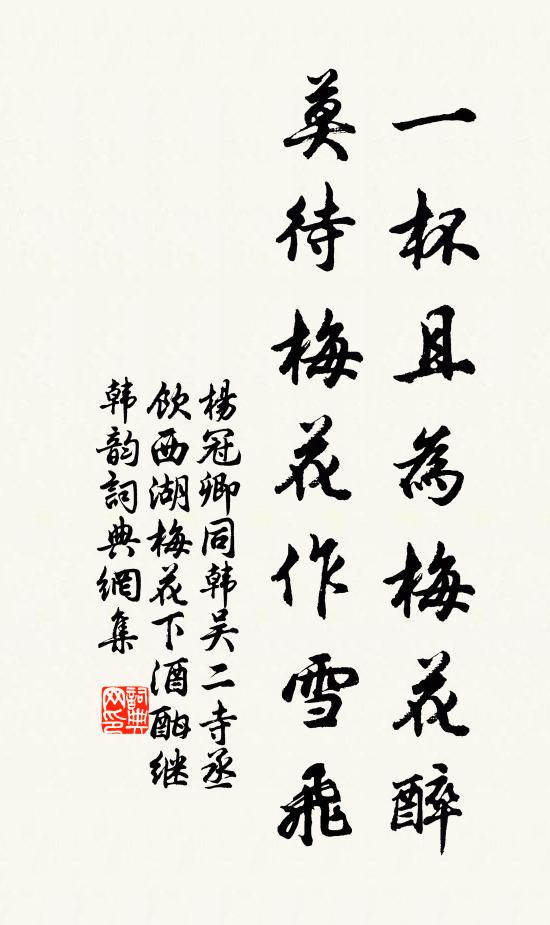 一杯且為梅花醉
莫待梅花作雪飛
楊冠卿同韩吴二寺丞
飲西湖梅花下酒酣继
韩韵詞典網集
詞典
网印